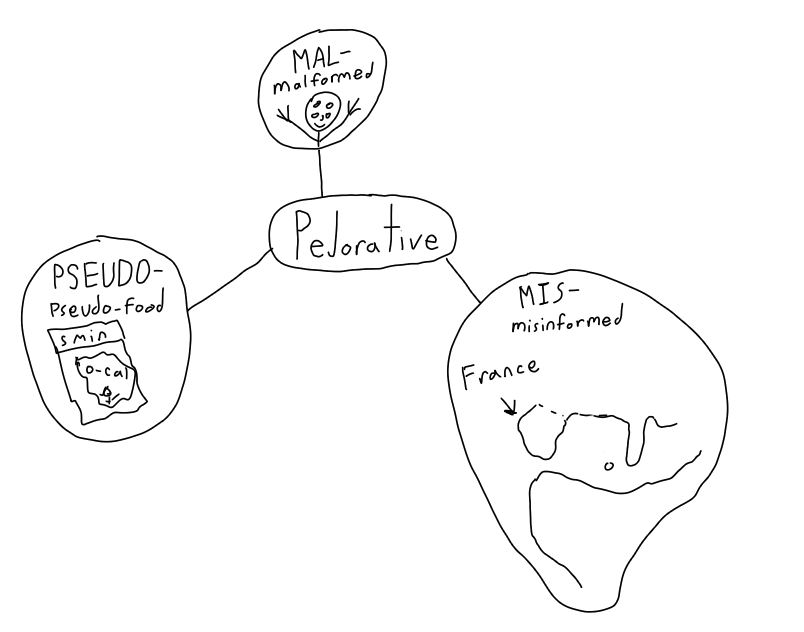 MAL-
malformed
Pejorative
PSEUDO-
Pseudo-food
5 min
0-cal
MIS-
misinformed
France